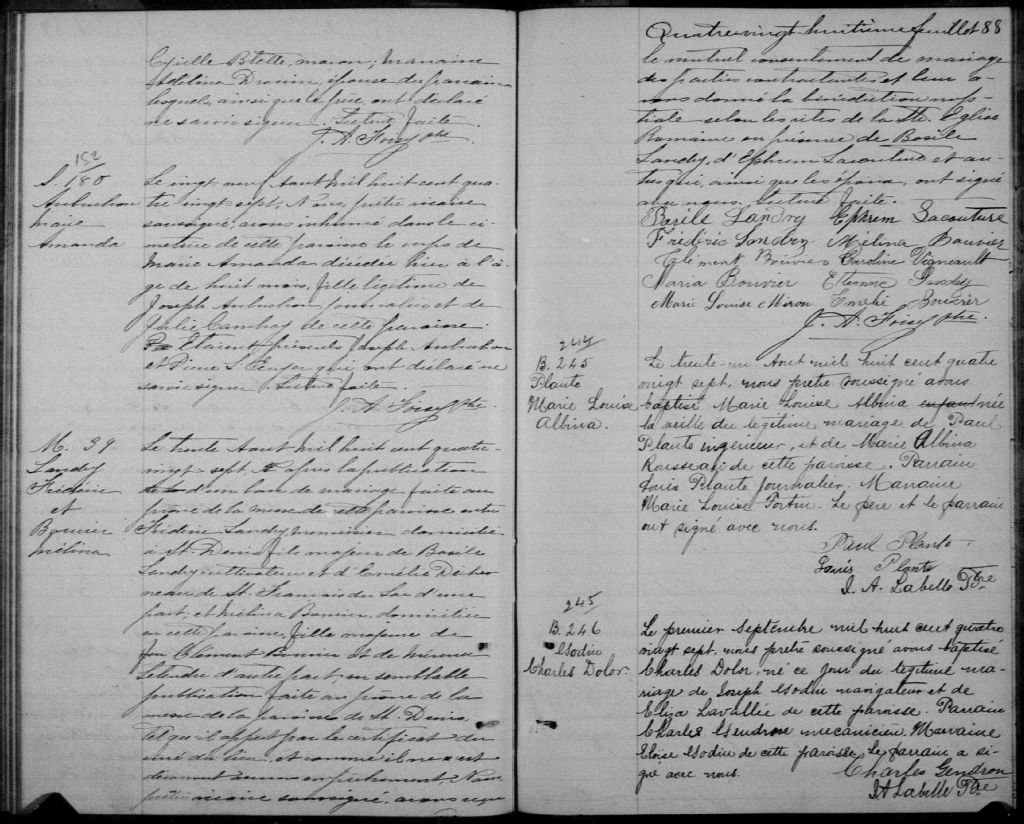 Cyrille Btette, maçon; marraine
Adélina Drouin, épouse du parrain
lesquels, ainsi que le père, ont déclaré
ne savoir signer. Lecture faite.
J. A. Foisy Ptre
152
S. 180
Aubuchon
Marie
Amanda
Le vingt neuf Aout mil huit cent qua-
tre vingt sept, Nous, prêtre vicaire
soussigné, avons inhumé dans le ci
metière de cette paroisse le corps de
Marie Amanda décédée hier à l'â-
ge de huit mois, fille légitime de
Joseph Aubuchon journalier et de
Julie de cette paroisse.
Etaient présents Joseph Aubuchon
et Pierre qui ont déclaré ne
savoir signer. Lecture faite.
J. A. Foisy Ptre
M. 39
Landry
Frédéric
et
Bouvier
Mélina
Le trente Aout mil huit cent quatre
vingt sept, après la publication
d'un ban de mariage faite au
prône de la messe de cette paroisse entre
Frédéric Landry, menuisier domicilié
à St. Denis, fils majeur de Basile
Landry cultivateur et d'Emélie
de St. François du Lac d'une
part; et Mélina Bouvier, domiciliée
en cette paroisse, fille majeure de
feu Clément Bouvier et de
d'autre part; semblable
publication faite au prône de la
messe de la paroisse de St. Denis
tel qu'il appert par le certificat du
curé du lieu, et comme il ne s'est
découvert aucun empêchement Nous
prêtre vicaire soussigné, avons reçu
Quatre vingt huitième feuillet 88
le mutuel consentement de mariage
des parties contractantes et leur a-
vons donné la bénédiction nup-
tiale selon les rites de la Ste. Eglise
Romaine en présence de Basile
Landry, d'Ephrem Lacouture et au-
tres qui, ainsi que les époux, ont signé
avec nous. Lecture faite.
Basile Landry Ephrem Lacouture
Frédéric Landry Mélina Bouvier
Clément Bouvier Caroline Vigneault
Maria Bouvier Etienne Landry
Marie Louise Miron Emélie Bouvier
J. A. Foisy Ptre.
244
B. 245
Plante
Marie Louise
Albina.
Le trente-un Aout mil huit cent quatre
vingt sept, nous prêtre soussigné avons
baptisé Marie Louise Albina enfant née
la veille du légitime mariage de Paul
Plante ingénieur, et de Marie Albina
Rousseau de cette paroisse. Parrain
Louis Plante journalier. Marraine
Marie Louise Fortin. Le père et le parrain
ont signé avec nous.
Paul Plante
Louis Plante
J. A. Labelle Ptre
245
B. 246
Charles Dolor.
Le premier Septembre mil huit cent quatre
vingt sept, nous prêtre soussigné avons baptisé
Charles Dolor, né ce jour du légitime ma-
riage de Joseph navigateur et de
Eliza Lavallée de cette paroisse. Parrain
Charles Gendron mécanicien. Marraine
Eloïse de cette paroisse. Le parrain a si-
gné avec nous.
Charles Gendron
J A Labelle Ptre